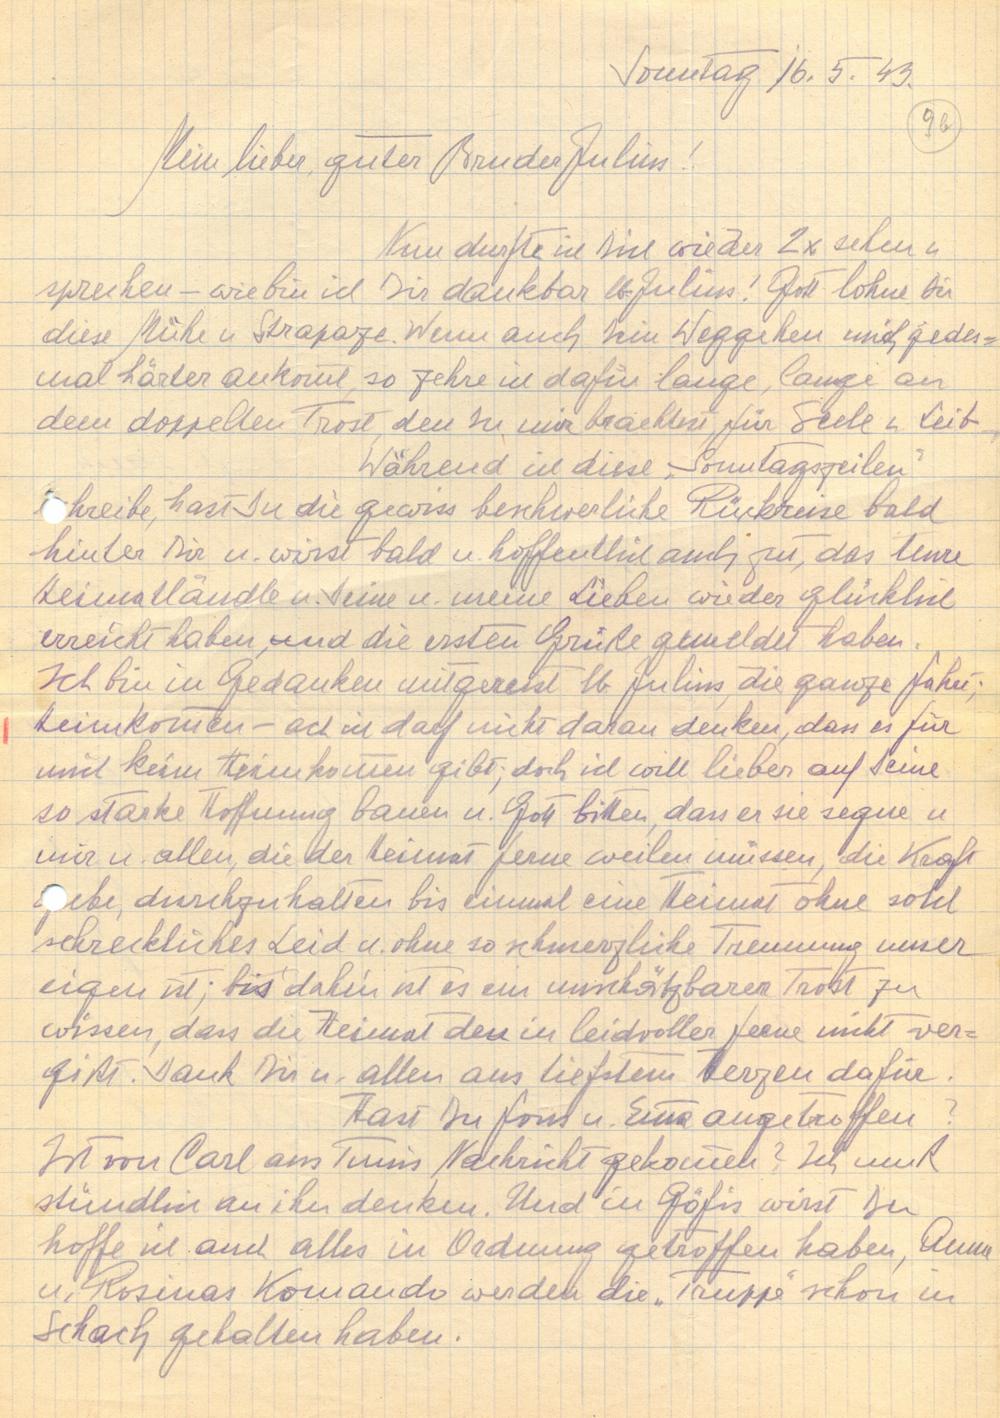 Sonntag 16. 5. 43.
9b
Mein lieber, guter Bruder Julius!
Nun durfte ich Dich wieder 2x sehen u
sprechen – wie bin ich Dir dankbar lb. Julius! Gott lohne Dir
diese Mühe u Strapaze. Wenn auch Dein Weggehen mich jedes=
mal härter ankomt, so zehre ich dafür lange, lange an
dem doppelten Trost, den Du mir brachtest, für Seele u Leib.
Während ich diese „Sonntagszeilen"
schreibe, hast Du die gewiss beschwerliche Rückreise bald
hinter Dir u. wirst bald u. hoffentlich auch gut, das teure
Heimatländle u. Deine u. meine Lieben wieder glücklich
erreicht haben, und die ersten Grüße gemeldet haben.
Ich bin in Gedanken mitgereist lb. Julius, die ganze Fahrt;
Heimkomen – ach ich darf nicht daran denken, dass es für
mich kein Heimkomen gibt; doch ich will lieber auf Deine
so starke Hoffnung bauen u. Gott bitten, dass er sie segne u
mir u. allen, die der Heimat ferne weilen müssen, die Kraft
gebe, durchzuhalten bis einmal eine Heimat ohne solch
schreckliches Leid u. ohne so schmerzliche Trennung unser
eigen ist; bis dahin ist es ein unschätzbarer Trost zu
wissen, dass die Heimat den in leidvoller Ferne nicht ver=
gißt. Dank Dir u. allen aus tiefstem Herzen dafür.
Hast Du u. angetroffen?
Ist von Carl aus Tunis Nachricht gekomen? Ich muß
stündlich an ihn denken. Und in Göfis wirst Du
hoffe ich auch alles in Ordnung getroffen haben, Anna
u. Rosinas Komando werden die „Truppe" schon in
Schach gehalten haben.